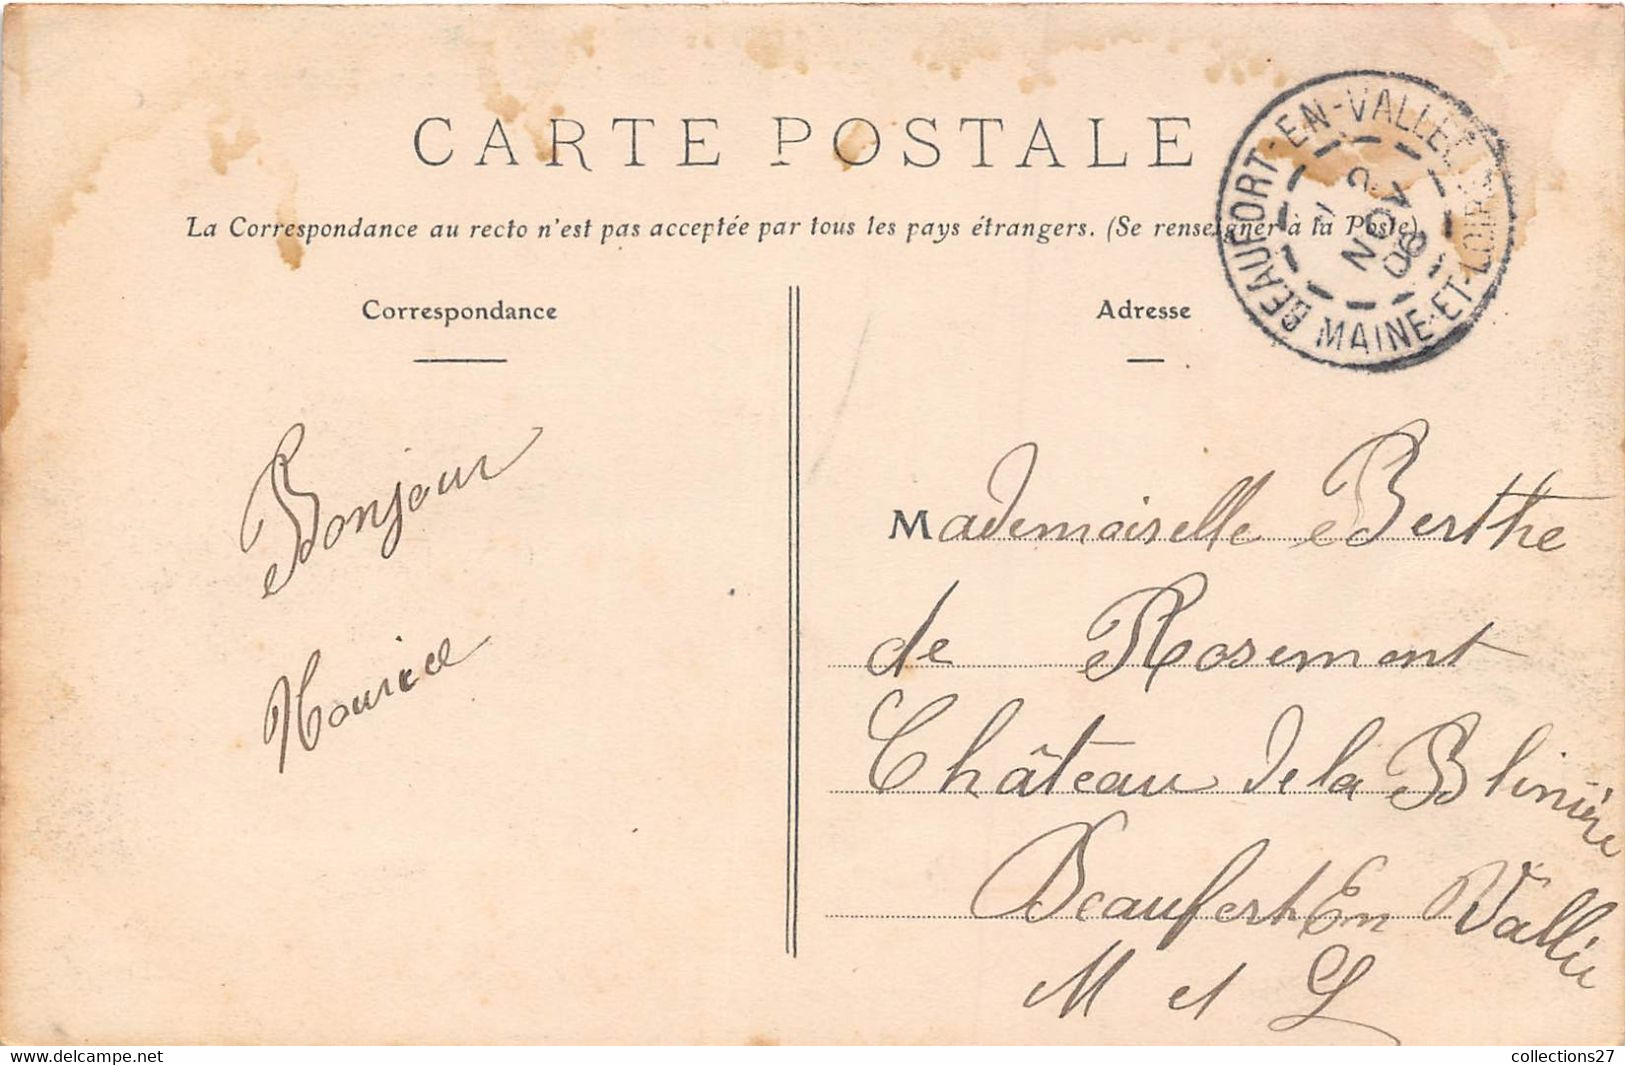 CARTE POSTALE
La Correspondance au recto n'est pas acceptée par tous les pays étrangers. (Se renseigner à la Poste)
BEAUFORT-EN-VALLEE
NOV
08
MAINE-ET-LOIRE
Correspondance
Bonjour
Maurice
Adresse
Mademoiselle Berthe
de Rosemont
Château de la Blinière
Beaufort En Vallée
M et L
collections27